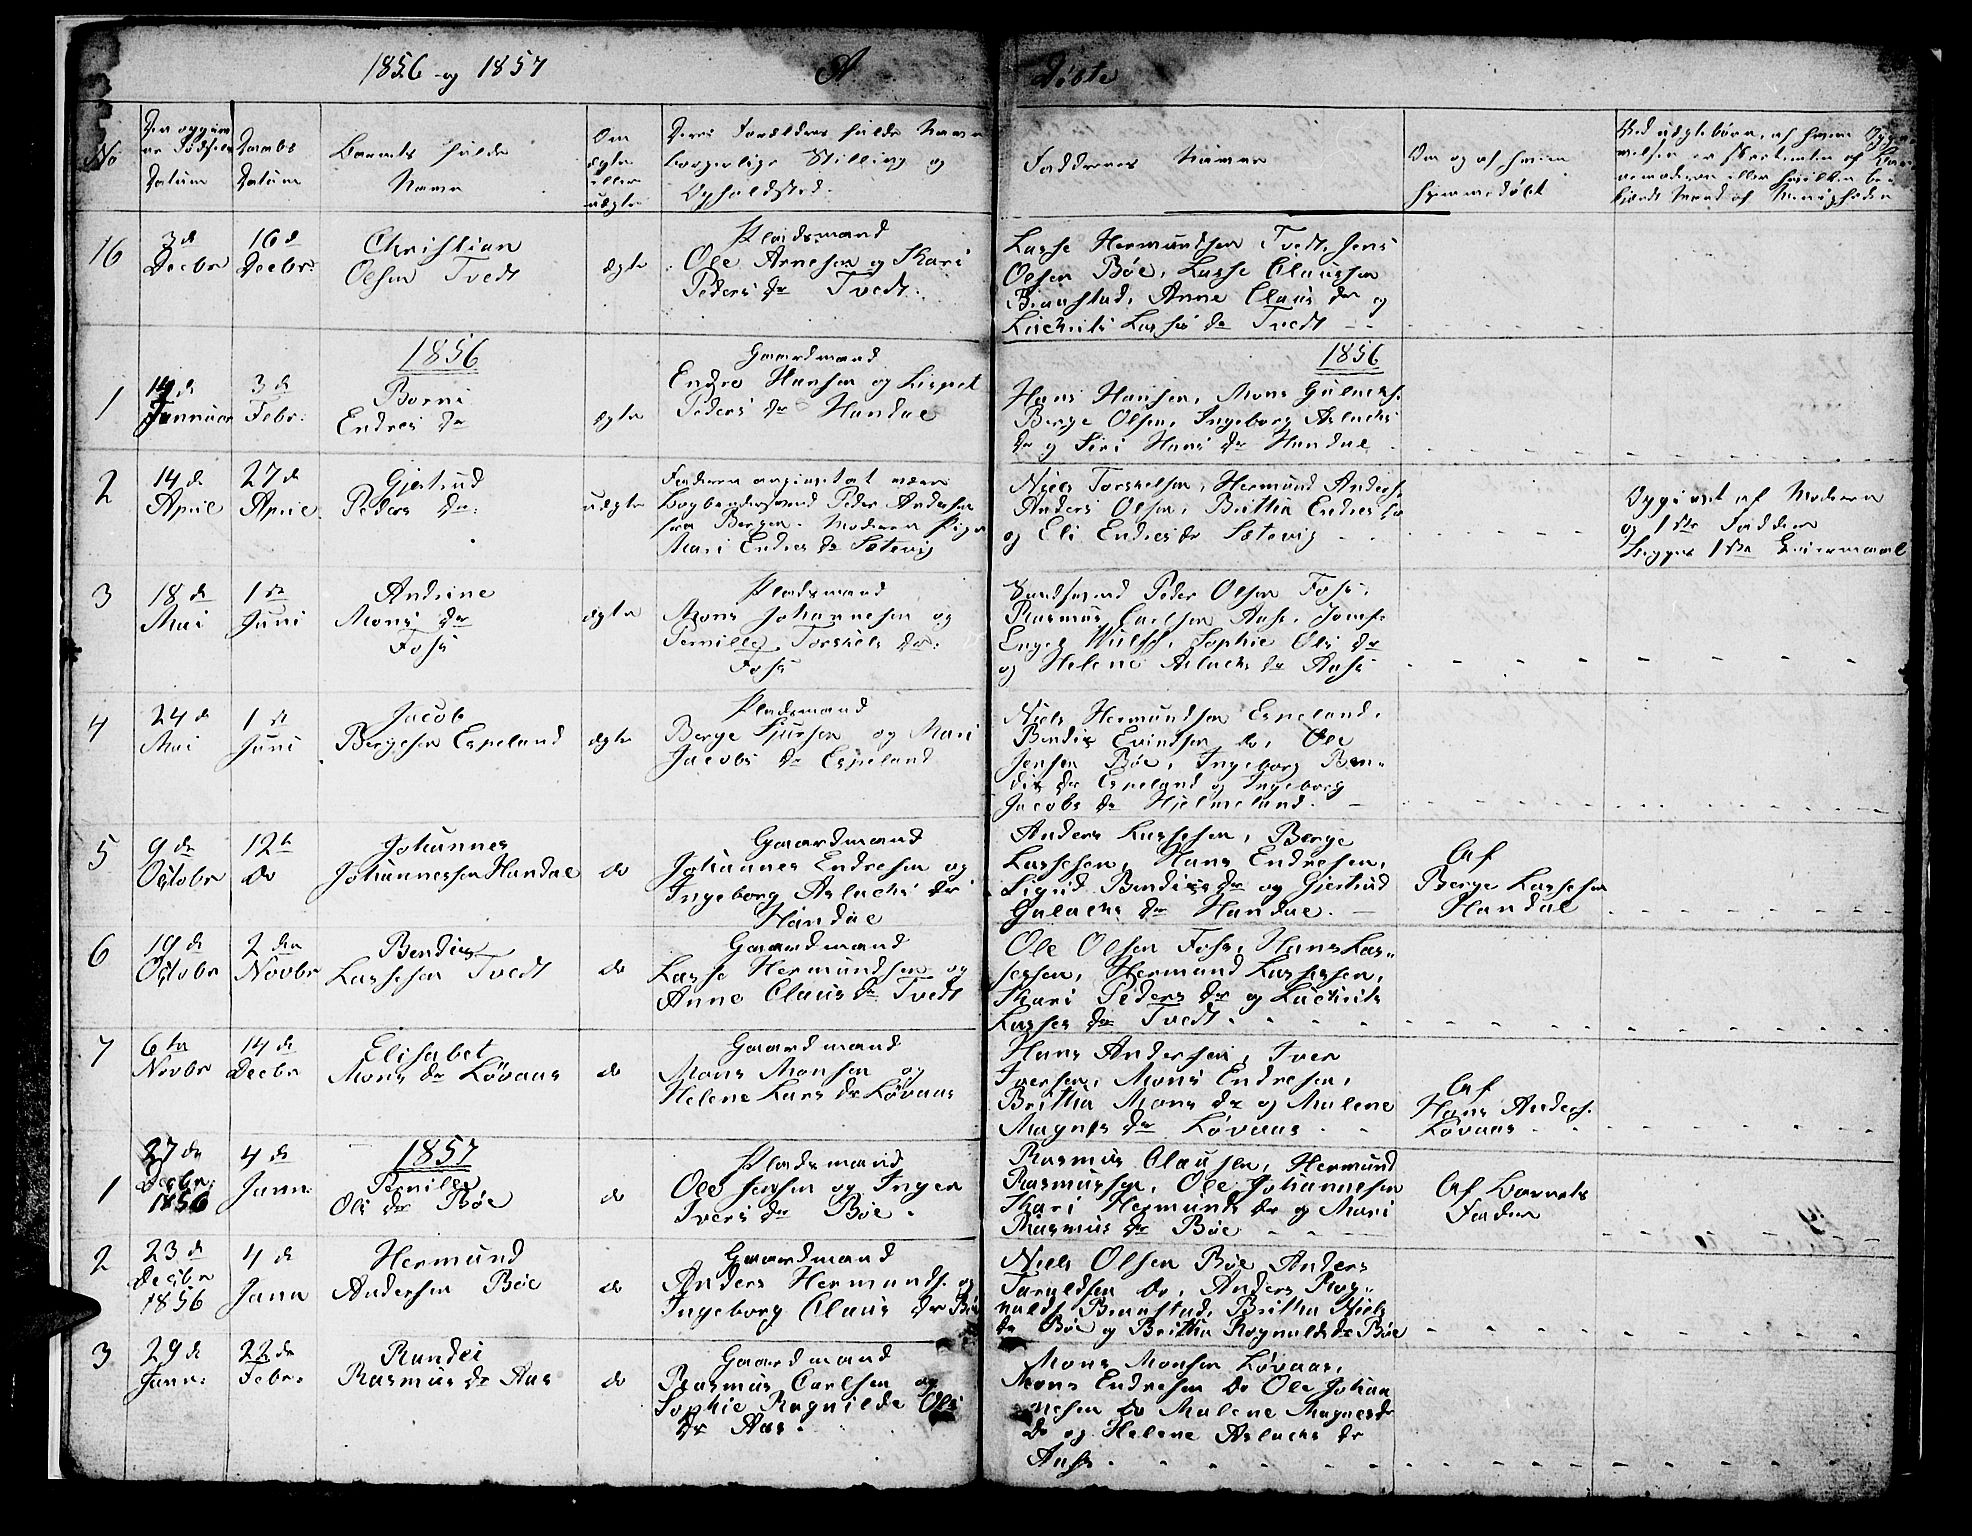 1856 og 1857
A
Liste
No
Datum
Daabs
Datum
Barnets fulde
Navn
Om
ægte
eller
uægte
Deres Forældres fulde Navn
borgerlige Stilling og
Opholdsted.
Faddernes Navne
Om og af hvem
hjemmedøbt
16
3 de
Decbr
16 de
Decbr.
Christian
Olsen Tvedt
ægte
Pladsmand
Ole Arnesen og Kari
Peders Dr Tvedt.
Lasse Hermundsen Tvedt, Jens
Olsen Bøe, Lasse Claussen
Brunstad, Anne Claus Dr og
Lasses Dr Tvedt
1856
1856
1
Januar
3 de
Febr.
Borni
Endres Dr
ægte
Gaardmand
Endre Hansen og Lispet
Peders Dr Handal
Hans Hansen, Mons
Berge Olsen, Ingeborg Aslachs
Dr og Siri Hans Dr Handal
2
14 de
April
27 de
April
Gjertrud
Peders Dr.
uægte
Faderen angivet at være
Bogbindersvend Peder Andersen
fra Bergen. Moderen Pigen
Mari Endres Dr Sætevig
Niels Torkelsen, Hermund Anders.
Anders Olsen, Britha Endres Dr
og Eli Endres Dr Sætevig
Opgivet af Moderen
og 1ste Fadder
Begges 1ste Leiermaal
3
18 de
Mai
1 ste
Juni
Andrine
Mons Dr
Foss
ægte
Pladsmand
Mons Johannesen og
Pernille Torkels Dr.
Foss
Peder Olsen Foss,
Rasmus Carlsen Aase, Jomf.
Engel Sophie Ols Dr
og Helene Aslachs Dr Aase
4
24 de
Mai
1 ste
Juni
Jacob
Bergesen Espeland
ægte
Pladsmand
Berge Sjursen og Mari
Jacobs Dr Espeland
Niels Hermundsen Espeland,
Bendix Evindsen do, Ole
Jensen Bøe, Ingeborg Ben-
dix Dr Espeland og Ingeborg
Jacobs Dr Hjelmeland.
5
9 de
Octobr
12te
do
Johannes
Johannessen Handal
do
Gaardmand
Johannes Endresen og
Ingeborg Aslachs Dr
Handal
Anders Lassesen, Berge
Lassesen, Hans Endresen,
Sigrid Bendixs Dr og Gjertrud
Gulachs Dr Handal.
Af
Berge Lassesen
Handal
6
19 de
Octobr
2 den
Novbr
Bendix
Lassesen Tvedt
do
Gaardmand
Lasse Hermundsen og
Anne Claus Dr Tvedt
Ole Olsen Foss, Hans Las-
sessen, Hermund Lassessen,
Kari Peders Dr og
Lasses Dr Tvedt.
7
6 te
Novbr
14 de
Decbr
Elisabet
Mons Dr Løvaas
do
Gaardmand
Mons Monsen og
Helene Lars Dr Løvaas
Hans Andersen, Iver
Iversen, Mons Endresen,
Britha Mons Dr og Malene
Magnes Dr Løvaas
Af
Hans Anders.
Løvaas
1857
1
27 de
Decbr.
1856
4 de
Janr.
Pernille
Ols Dr Bøe
do
Pladsmand
Ole Jensen og Inger
Ivers Dr Bøe.
Rasmus Clausen, Hermund
Rasmussen, Ole Johannesen
Kari Hermunds Dr og Mari
Rasmus Dr Bøe
Af Barnets
Fader
2
23 de
Decbr
1856
4 de
Janr
Hermund
Andersen Bøe
do
Gaardmand
Anders Hermunds. og
Ingeborg Claus Dr Bøe
Niels Olsen Bøe Anders
Taraldsen do, Anders Rog-
nalds Brunstad, Britha Niels
Dr Bøe og Britha Rognalds Dr Bøe
3
29 de
Janr.
22 de
Febr.
Rundei
Rasmus Dr Aas
do
Gaardmand
Rasmus Carlsen og
Sophie Ragnilde Ols
Dr Aas.
Mons Monsen Løvaas,
Mons Endresen do Ole Johan
nesen do Malene Magnes Dr
do og Helene Aslachs Dr
Aase.